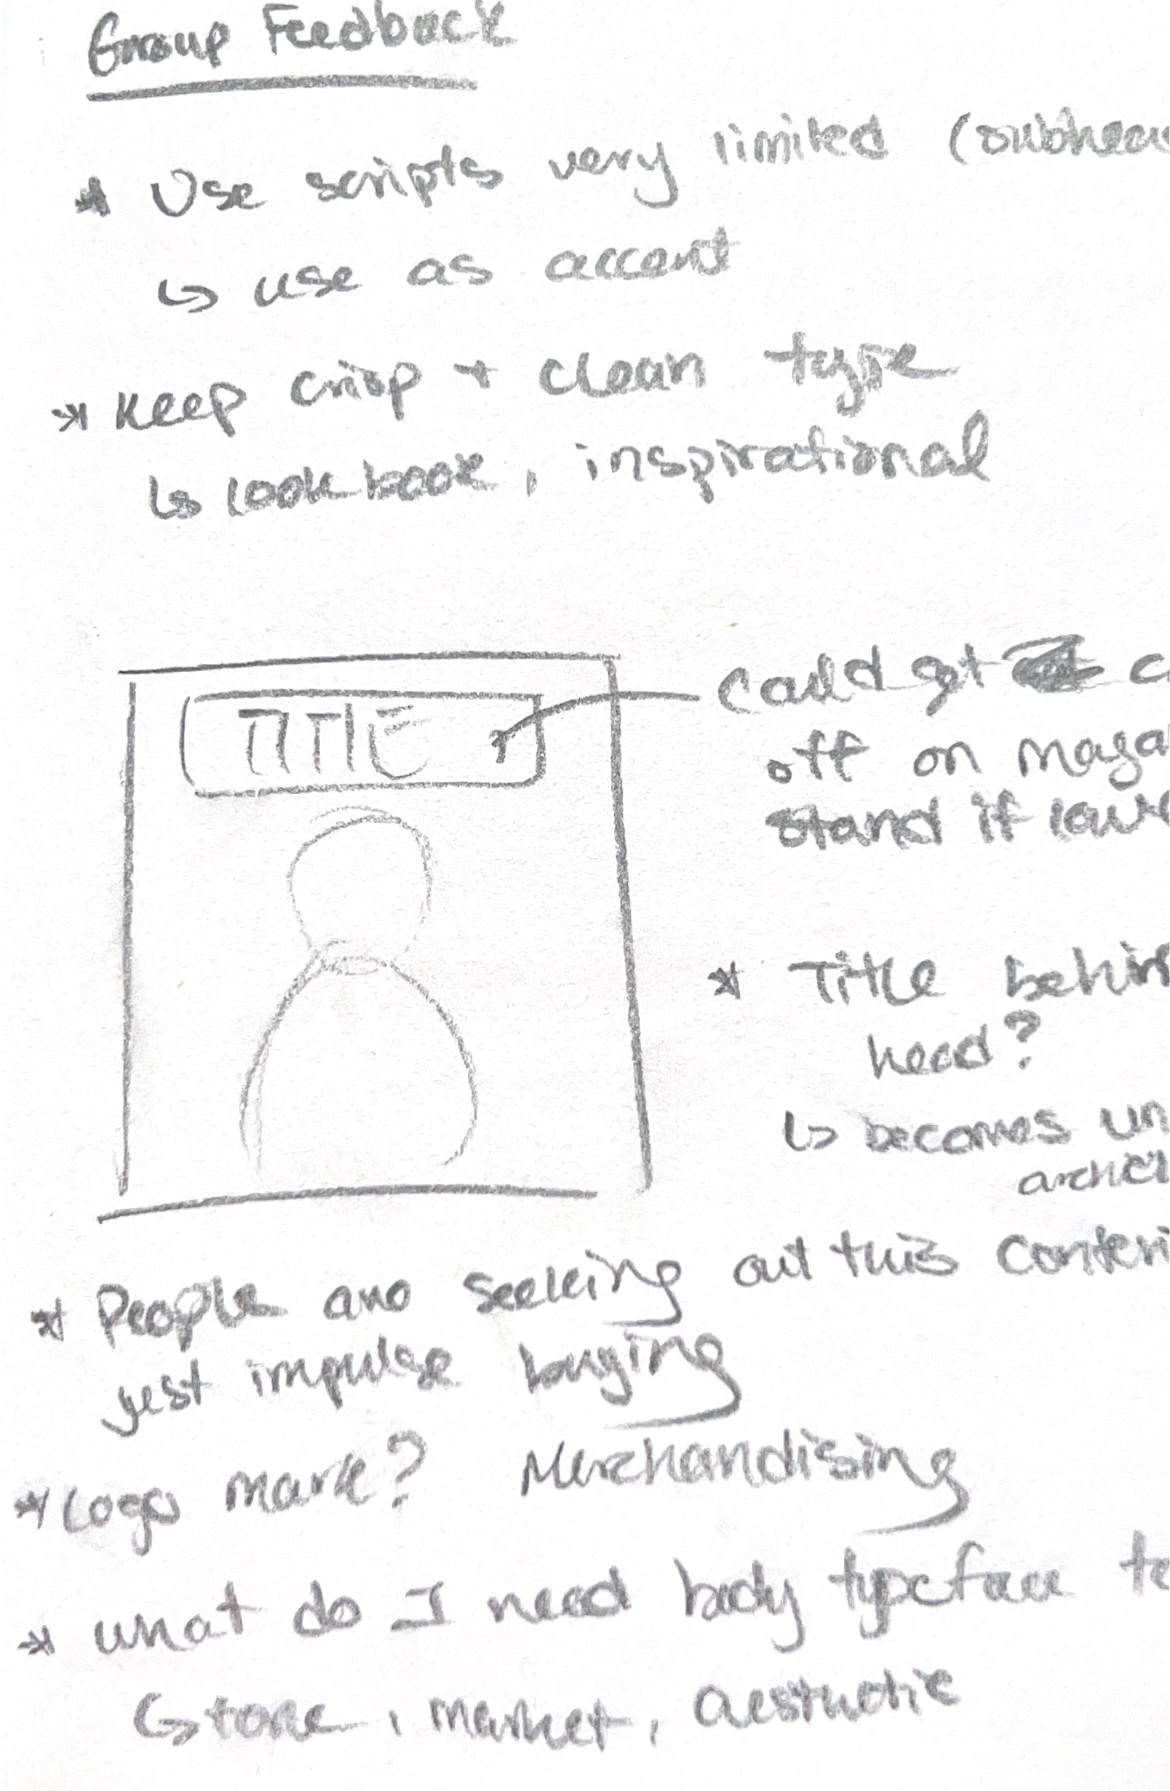 Group Feedback
* Use scripts very limited (subhea
↳ use as accent
* Keep crisp + clean type
↳ look book, inspirational
TITLE
Could get c
off on maga
stand if low
* Title behin
head?
↳ becomes un
* People are seeking out this conten
just impulse buying
* Logo mark? Merchandising
* what do I need body typeface to
↳ tone, market, aesthetic